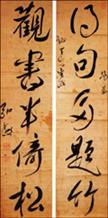 得句多題竹
觀書半倚松